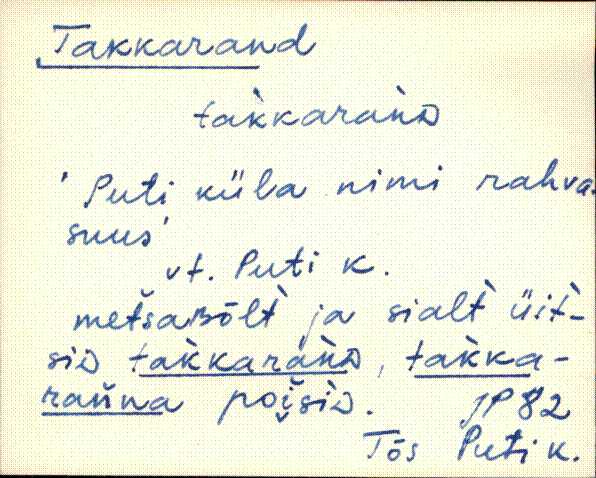 Takkarand
tak̀karaǹD
'Puti küla nimi rahva-
suus'
vt. Puti k.
metšaBõlt̀ ja sialt̀ üit̀-
siD tak̀karaǹD, tak̀ka-
rañna poi̬šiD. JP 82
Tõs Puti k.